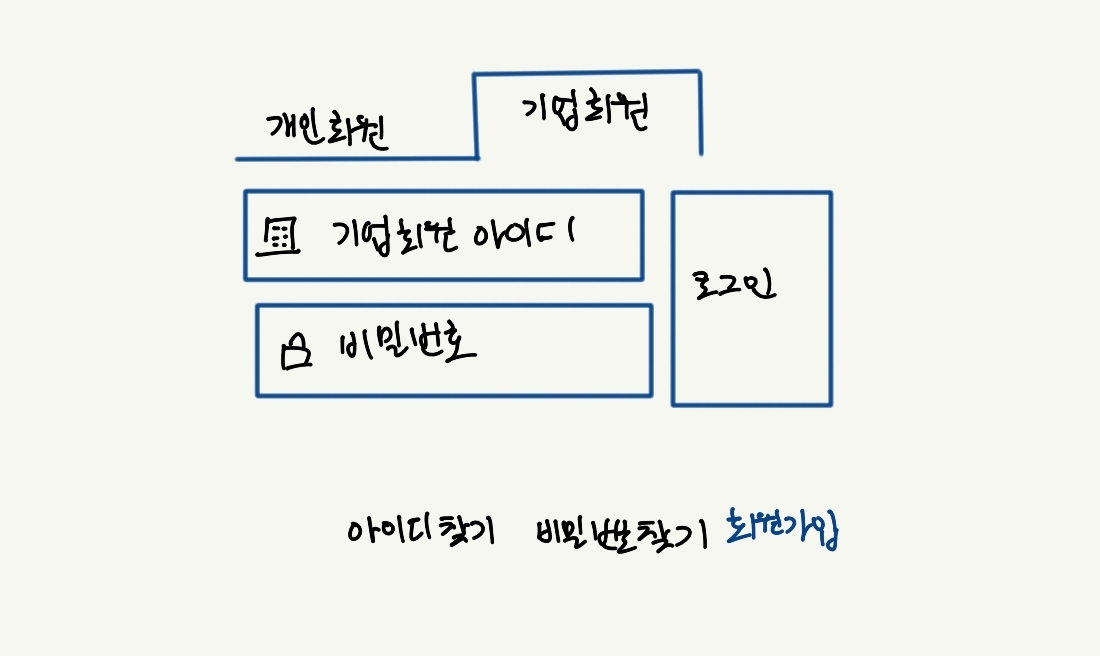 개인회원 기업회원
기업회원 아이디
로그인
비밀번호
아이디찾기 비밀번호찾기 회원가입